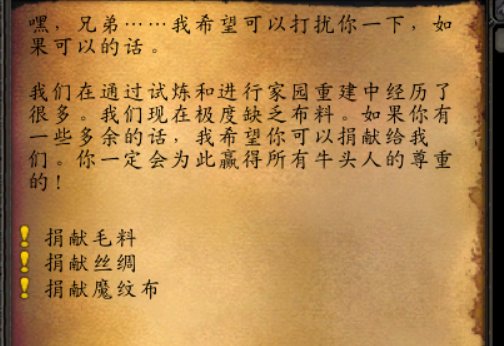 嘿，兄弟……我希望可以打扰你一下，如
果可以的话。
我们在通过试炼和进行家园重建中经历了
很多。我们现在极度缺乏布料。如果你有
一些多余的话，我希望你可以捐献给我
们。你一定会为此赢得所有牛头人的尊重
的！
捐献毛料
捐献丝绸
捐献魔纹布